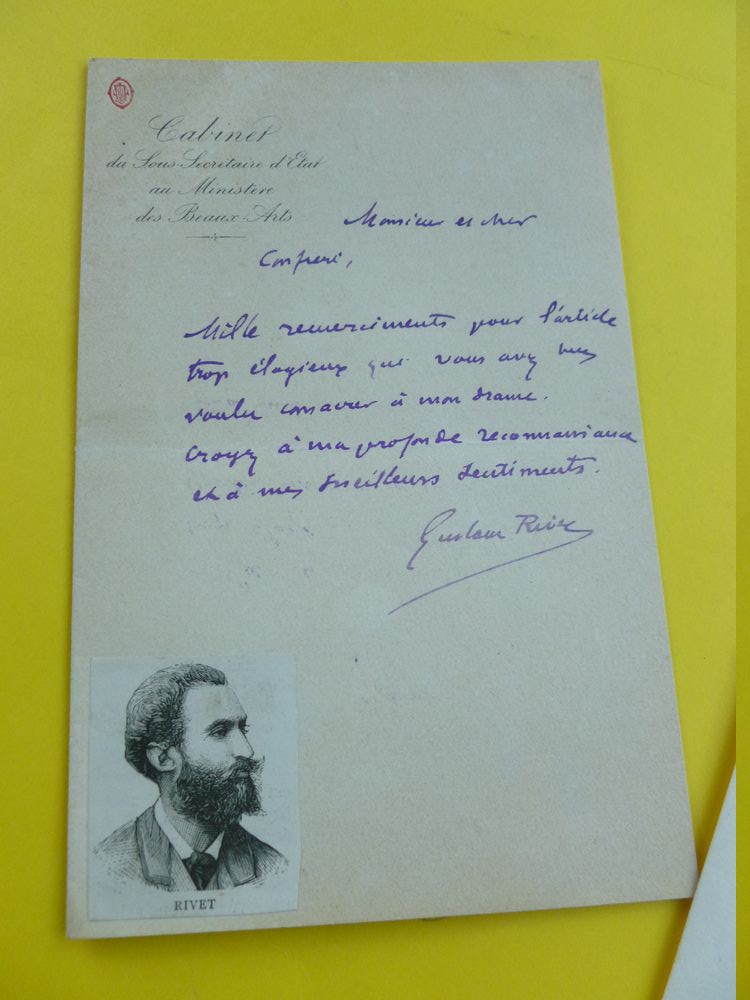 Cabinet
du Sous-Secrétaire d'Etat
au Ministère
des Beaux-Arts
Monsieur et cher
Confrère,
Mille remerciments pour l'article
trop élogieux que vous avez bien
voulu consacrer à mon drame.
Croyez à ma profonde reconnaissance
et à mes meilleurs sentiments.
Gustave Rivet
RIVET